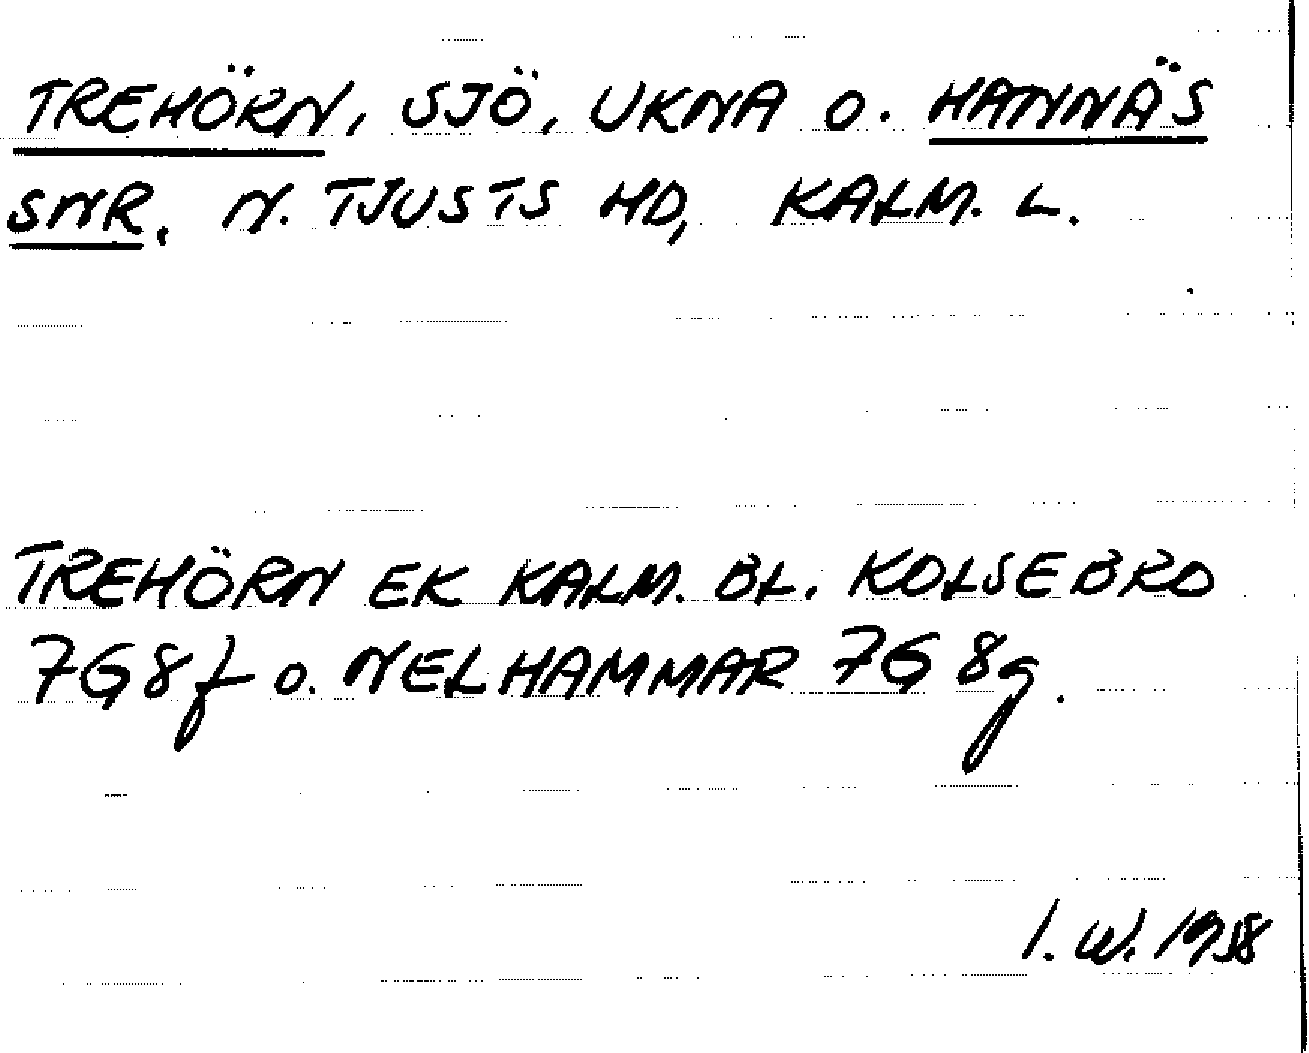 TREHÖRN, SJÖ, UKNA O. HANNÄS
SNR. N. TJUSTS HD, KALM. L.
TREHÖRN EK KALM. BL. KOLSEBRO
7G8f o. NELHAMMAR 7G 8g.
I. W. 1958